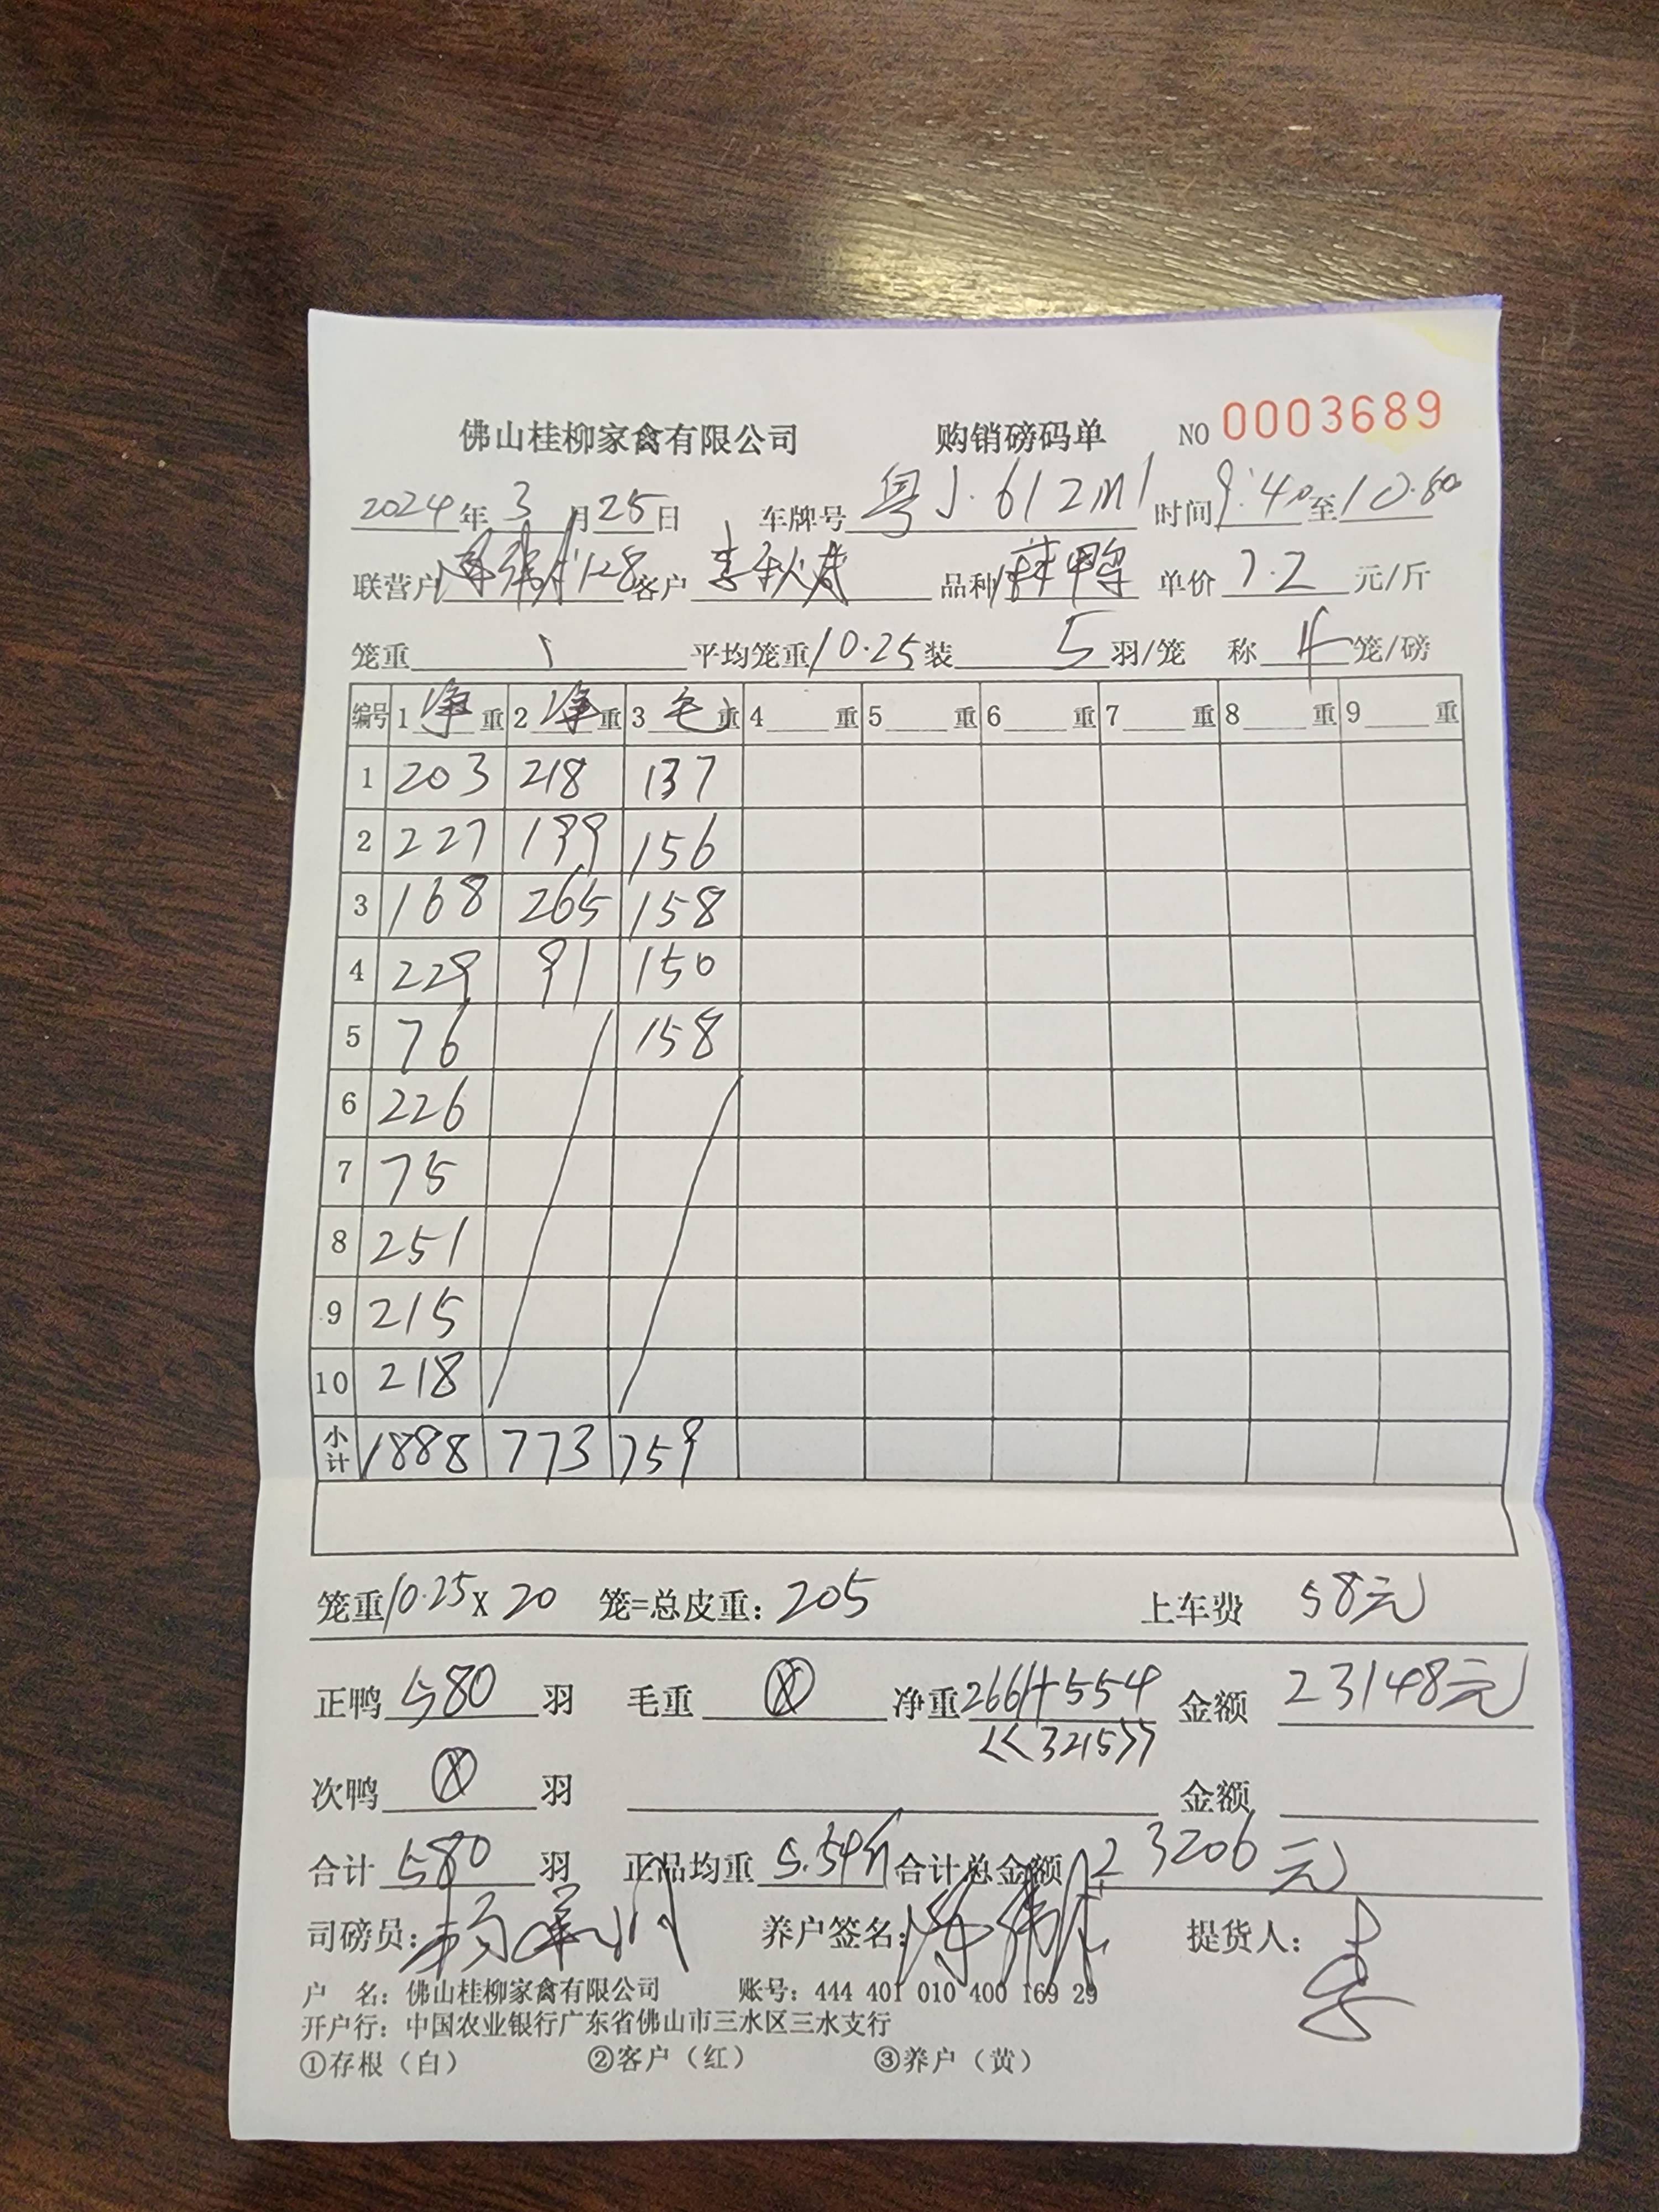 佛山桂柳家禽有限公司 购销磅码单 NO 0003689
2024年3月25日 车牌号 粤J·612M1 时间9:40至10:50
联营户 128 客户 李秋 品种 鸭 单价 7.2 元/斤
笼重 平均笼重10.25装 5 羽/笼 称 4 笼/磅
编号 1 净 重 2 净 重 3 毛 重 4 重 5 重 6 重 7 重 8 重 9 重
1 203 218 137
2 227 199 156
3 168 265 158
4 229 91 150
5 76 158
6 226
7 75
8 251
9 215
10 218
小计 1888 773 759
笼重10.25X 20 笼=总皮重：205 上车费 58元
正鸭 580 羽 毛重 ⊗ 净重2661+554 金额 23148元
<<3215>>
次鸭 ⊗ 羽 金额
合计 580 羽 正品均重 5.54斤 合计总金额 23206元
司磅员：杨 养户签名： 提货人：李
户 名：佛山桂柳家禽有限公司 账号：444 401 010 400 169 29
开户行：中国农业银行广东省佛山市三水区三水支行
①存根（白） ②客户（红） ③养户（黄）